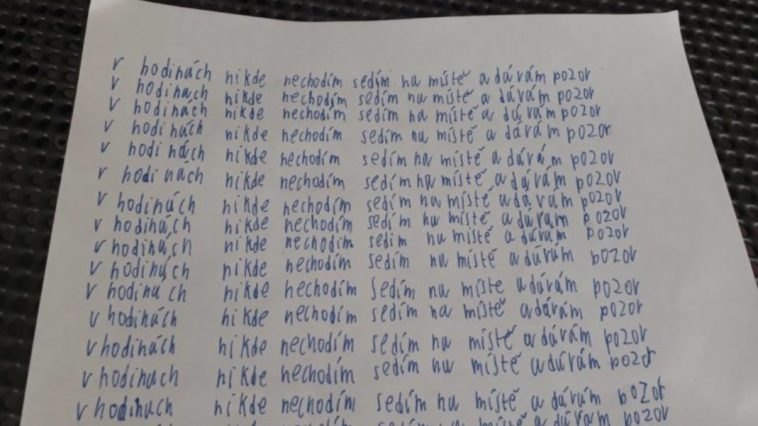 v hodinách nikde nechodím sedím na místě a dávám pozor
v hodinach nikde nechodím sedím na místě a dávám pozor
v hodinách nikde nechodím sedím na místě a dávám pozor
v hodinách nikde nechodím sedím na místě a dárám pozor
v hodinách nikde nechodím sedím na místě a dávám pozor
v hodinách nikde nechodím sedím na místě a dárám pozor
v hodinách nikde nechodím sedím na místě a dárám pozor
v hodinách nikde nechodím sedím na místě a dárum pozor
v hodinách nikde nechodím sedím na místě a dárám pozor
v hodinách nikde nechodím sedím na místě a dávám pozor
v hodinach nikde nechodím sedím na místě a dávám pozor
v hodinách nikde nechodím sedím na místě a dárám pozor
v hodinách nikde nechodím sedím na místě a dárám pozor
v hodinach nikde nechodím sedím na místě a dárám pozor
v hodinach nikde nechodím sedím na místě a dávám pozor
sedím na místě a dávám pozor